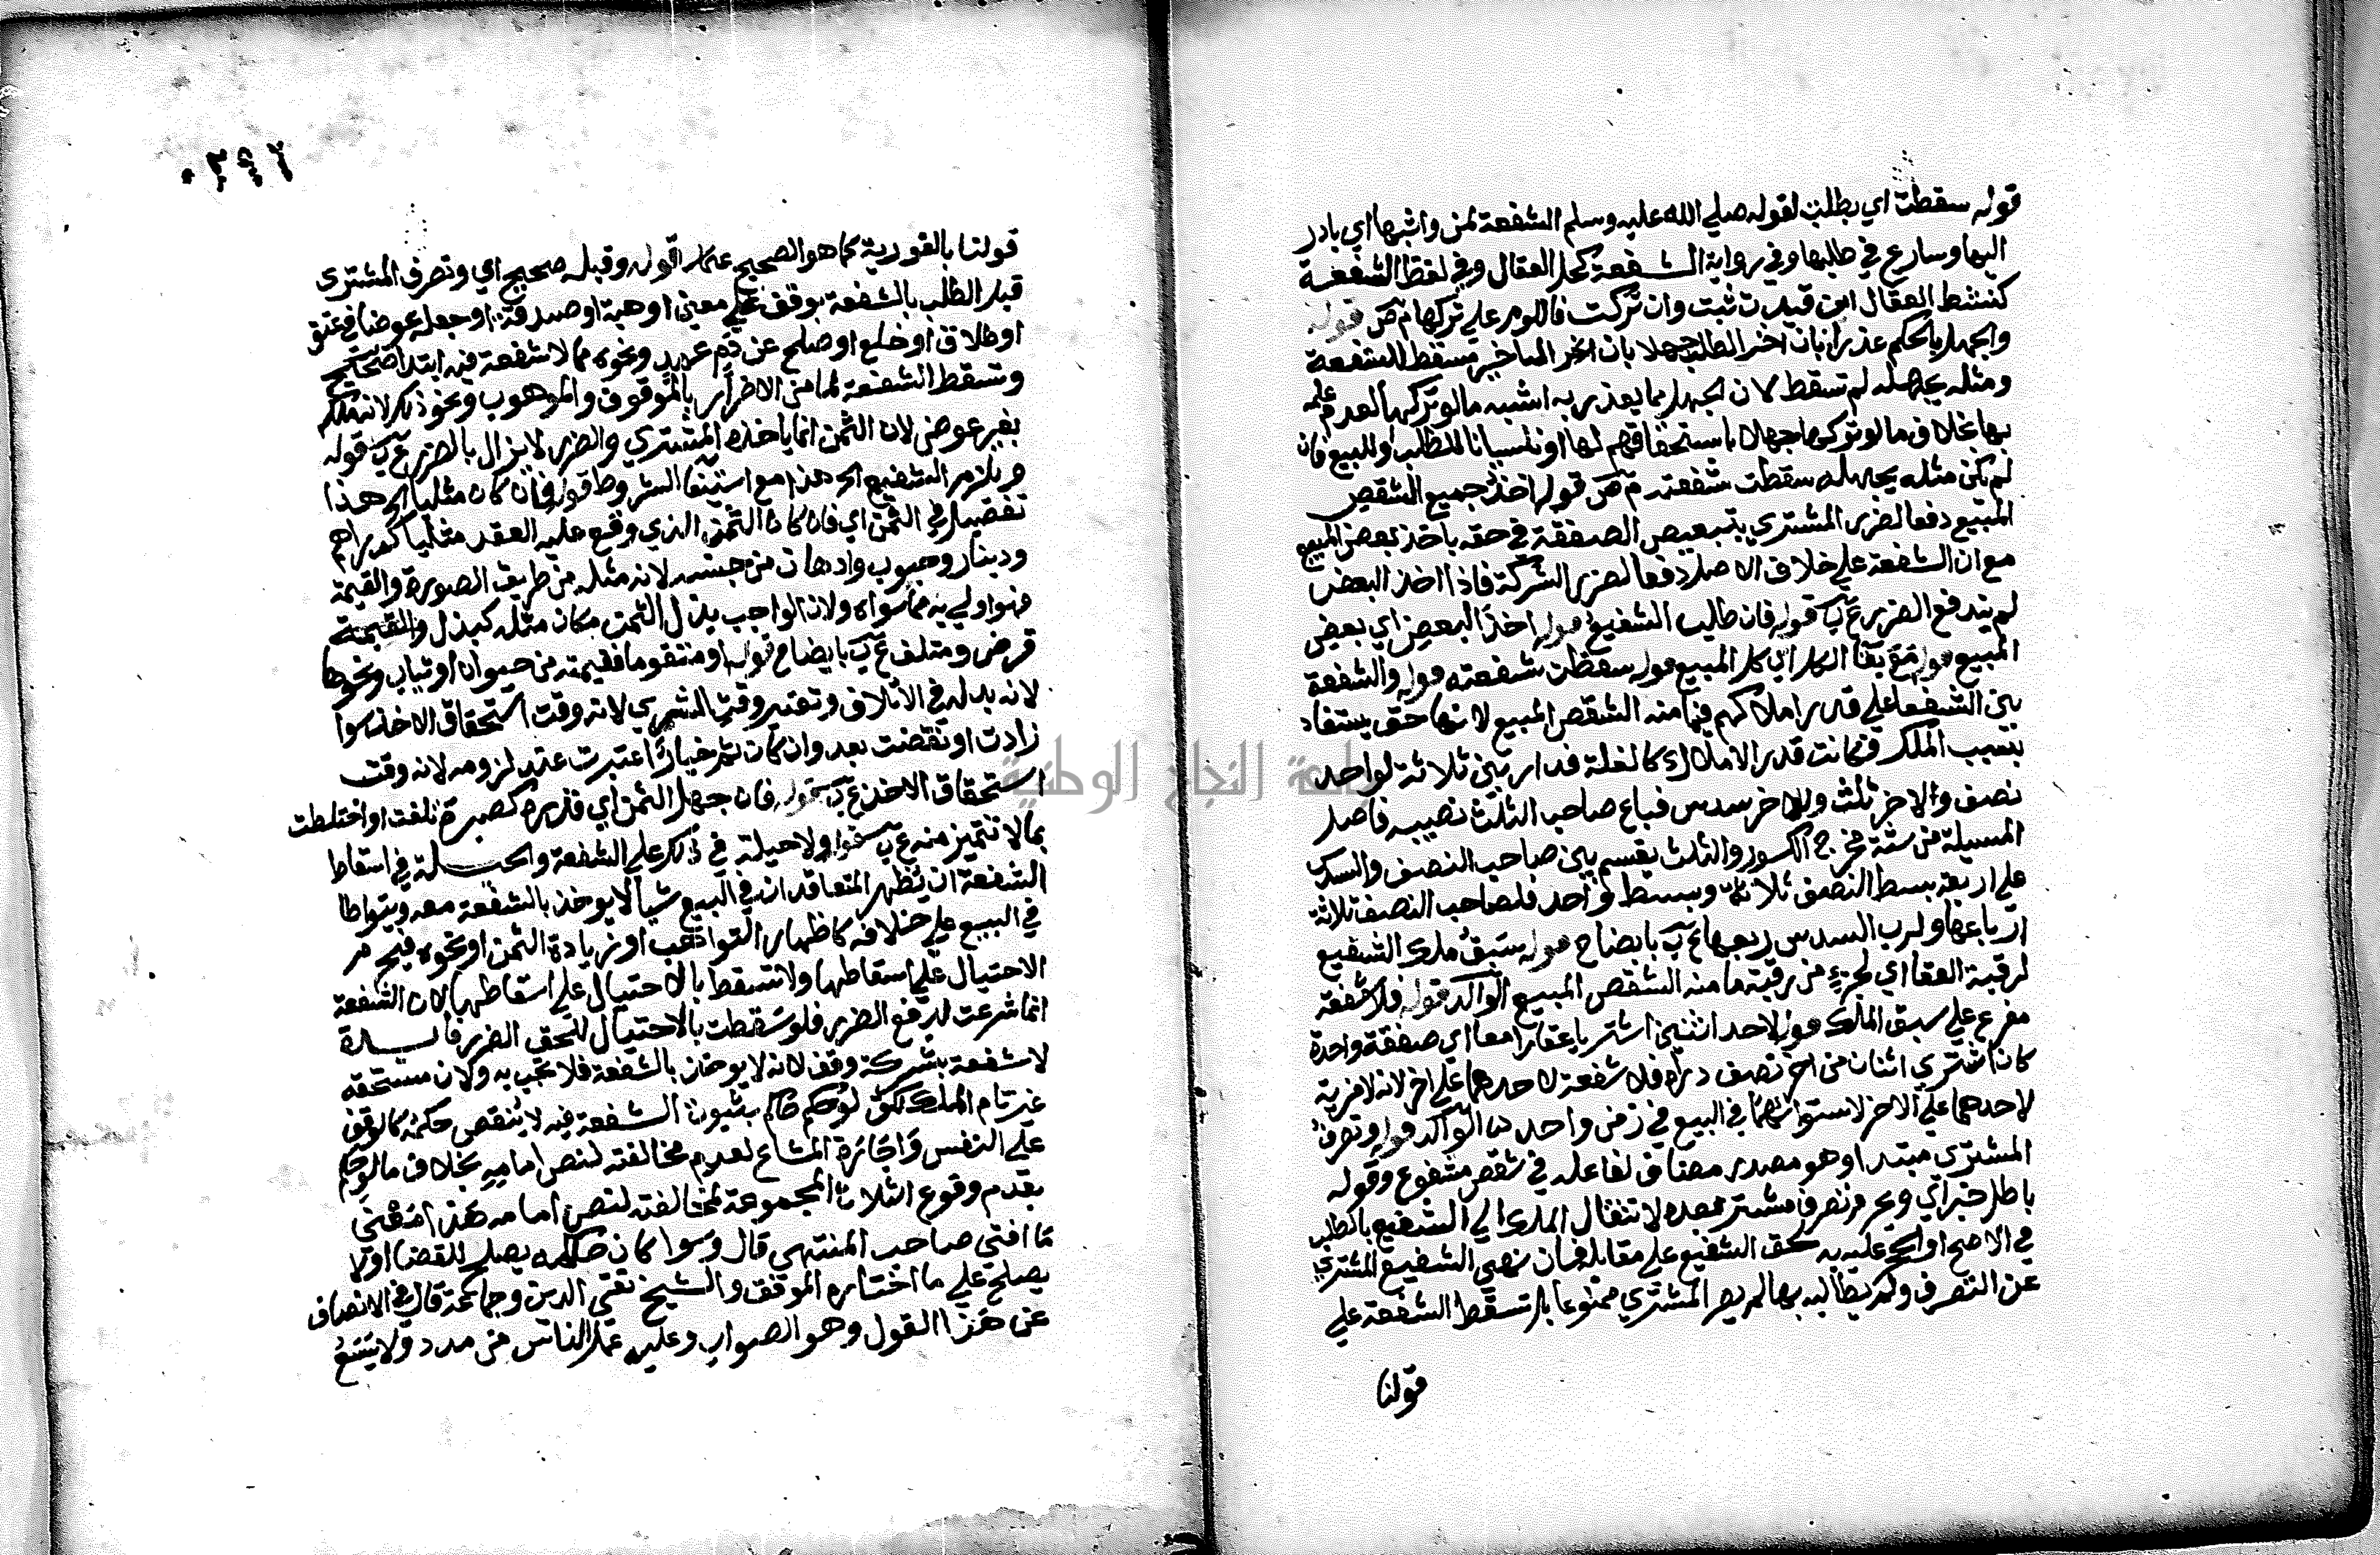 قوله سقطت اي بطلت لقوله صلي الله عليه وسلم الشفعة لمن واثبها اي بادر
اليها وسارع في طلبها وفي رواية الشفعة كحل العقال وفي لفظ الشفعة
كنشط العقال ان قيدت ثبت وان تركت فاللوم علي تركها م ص قوله
والجهل بالحكم عذر اذا بان اخر الطلب جهلا بان التاخير مسقط للشفعة
ومثله يجهله لم تسقط لان الجهل مما يعذر به اشبه ما لو تركها لعدم علمه
بها بخلاف ما لو تركها جهلا باستحقاقهم لها او نسيانا للطلب او للبيع فان
لم يكن مثله يجهله سقطت شفعته م ص قوله اخذ جميع الشقص
المبيع دفعا لضرر المشتري بتبعيض الصفقة في حقه باخذ بعض المبيع
مع ان الشفعة علي خلاف الاصل دفعا لضرر الشركة فاذا اخذ البعض
لم يندفع الضرر ع ب قوله فان طلب الشفيع قوله اخذ البعض اي بعض
المبيع قوله مع بقا الكل اي كل المبيع قوله سقطت شفعته قوله والشفعة
بين الشفعا علي قدر املاكهم فيما منه الشقص المبيع لانها حق يستفاد
بسبب الملك فكانت قدر الاملاك كالغلة فدار بين ثلاثة لواحد
نصف والاخر ثلث وللاخر سدس فباع صاحب الثلث نصيبه فاصل
المسيلة من ستة مخرج الكسور والثلث يقسم بين صاحب النصف والسدس
علي اربعة بسط النصف ثلاثة وبسط واحد فلصاحب النصف ثلاثة
ارباعها ولرب السدس ربعها ع ب بايضاح قوله سبق ملك الشفيع
لرقبة العقار اي لجزء من رقبة ما منه الشقص المبيع الوالد قوله فلا شفعة
مفرع علي سبق الملك قوله لاحد اثنين اشتريا عقارا معا اي صفقة واحدة
كان اشتري اثنان من اخر نصف دار فلا شفعة لاحدهما علي اخر لانه لا مزية
لاحدهما علي الاخر لاستوائهما في البيع في زمن واحد الوالد قوله وتصرف
المشتري مبتدا وهو مصدر مضاف لفاعله في شقص مشفوع وقوله
باطل خبر اي ويحرم تصرف مشتر بعده لانتقال الملك الي الشفيع بالطلب
في الاصح او الحجر عليه به لحق الشفيع علي مقابله فان نهي الشفيع المشتري
عن التصرف ولم يطالبه بها لم يصر المشتري ممنوعا بل تسقط الشفعة علي
قولنا
٠٢٩٦
قولنا بالفورية كما هو الصحيح قوله وقبله صحيح اي وتصرف المشتري
قبل الطلب بالشفعة بوقف علي معين او هبة او صدقة او جعله عوضا في عتق
او طلاق او خلع او صلح عن دم عمد ونحوه مما لا شفعة فيه ابتدا صحيح
وتسقط الشفعة لما من الاضرار بالموقوف والموهوب ونحو ذلك لانه ملكه
بغير عوض لان الثمن انما ياخذه المشتري والضرر لا يزال بالضرر ع ب قوله
ويلزم الشفيع الخ هذا مع استيفا الشروط قوله فان كان مثليا الخ هذا
تفصيل في الثمن اي فان كان الثمن الذي وقع عليه العقد مثليا كدراهم
ودينار وحبوب وادهان من جنسه لانه مثله من طريق الصورة والقيمة
فهو اولي به مما سواه ولان الواجب بذل الثمن فكان مثله كبذل والقيمة
قرض ومتلف ع ب بايضاح قوله او متقوما فقيمته من حيوان او ثياب ونحوها
لانه بدله في الاتلاف وتعتبر وقت الشري لانه وقت استحقاق الاخذ سوا
زادت او نقصت بعد وان كان ثم خيار اعتبرت عند لزومه لانه وقت
استحقاق الاخذ ع ب قوله فان جهل الثمن اي قدره كصبرة تلفت او اختلطت
بما لا تتميز منه ع ب قوله ولا حيلة في ذلك علي الشفعة والحيلة في اسقاط
الشفعة ان يظهر المتعاقدان في البيع شيا لا يوخذ بالشفعة معه ويتواطا
في البيع علي خلافه كاظهار التواهب او زيادة الثمن او نحوه فيحرم
الاحتيال علي اسقاطها ولا تسقط بالاحتيال علي اسقاطها لان الشفعة
انما شرعت لدفع الضرر فلو سقطت بالاحتيال للحق الضرر فايدة
لا شفعة بشركة وقف لانه لا يوخذ بالشفعة فلا تجب به ولان مستحقه
غير تام الملك لكن لو حكم حاكم بثبوت الشفعة فيه لا ينقض حكمه كالوقف
علي النفس واجارة المشاع لعدم مخالفته لنص امامه بخلاف ما لو حكم
بعدم وقوع الثلاث المجموعة لمخالفته لنص امامه هذا معني
ما افتي صاحب المنتهي قال وسوا كان يصلح للقضا او لا
يصلح علي ما اختاره الموفق والشيخ تقي الدين وجماعة قال في الانصاف
عن هذا القول وهو الصواب وعليه عمل الناس من مدد ولا يسع
جامعة النجاح الوطنية